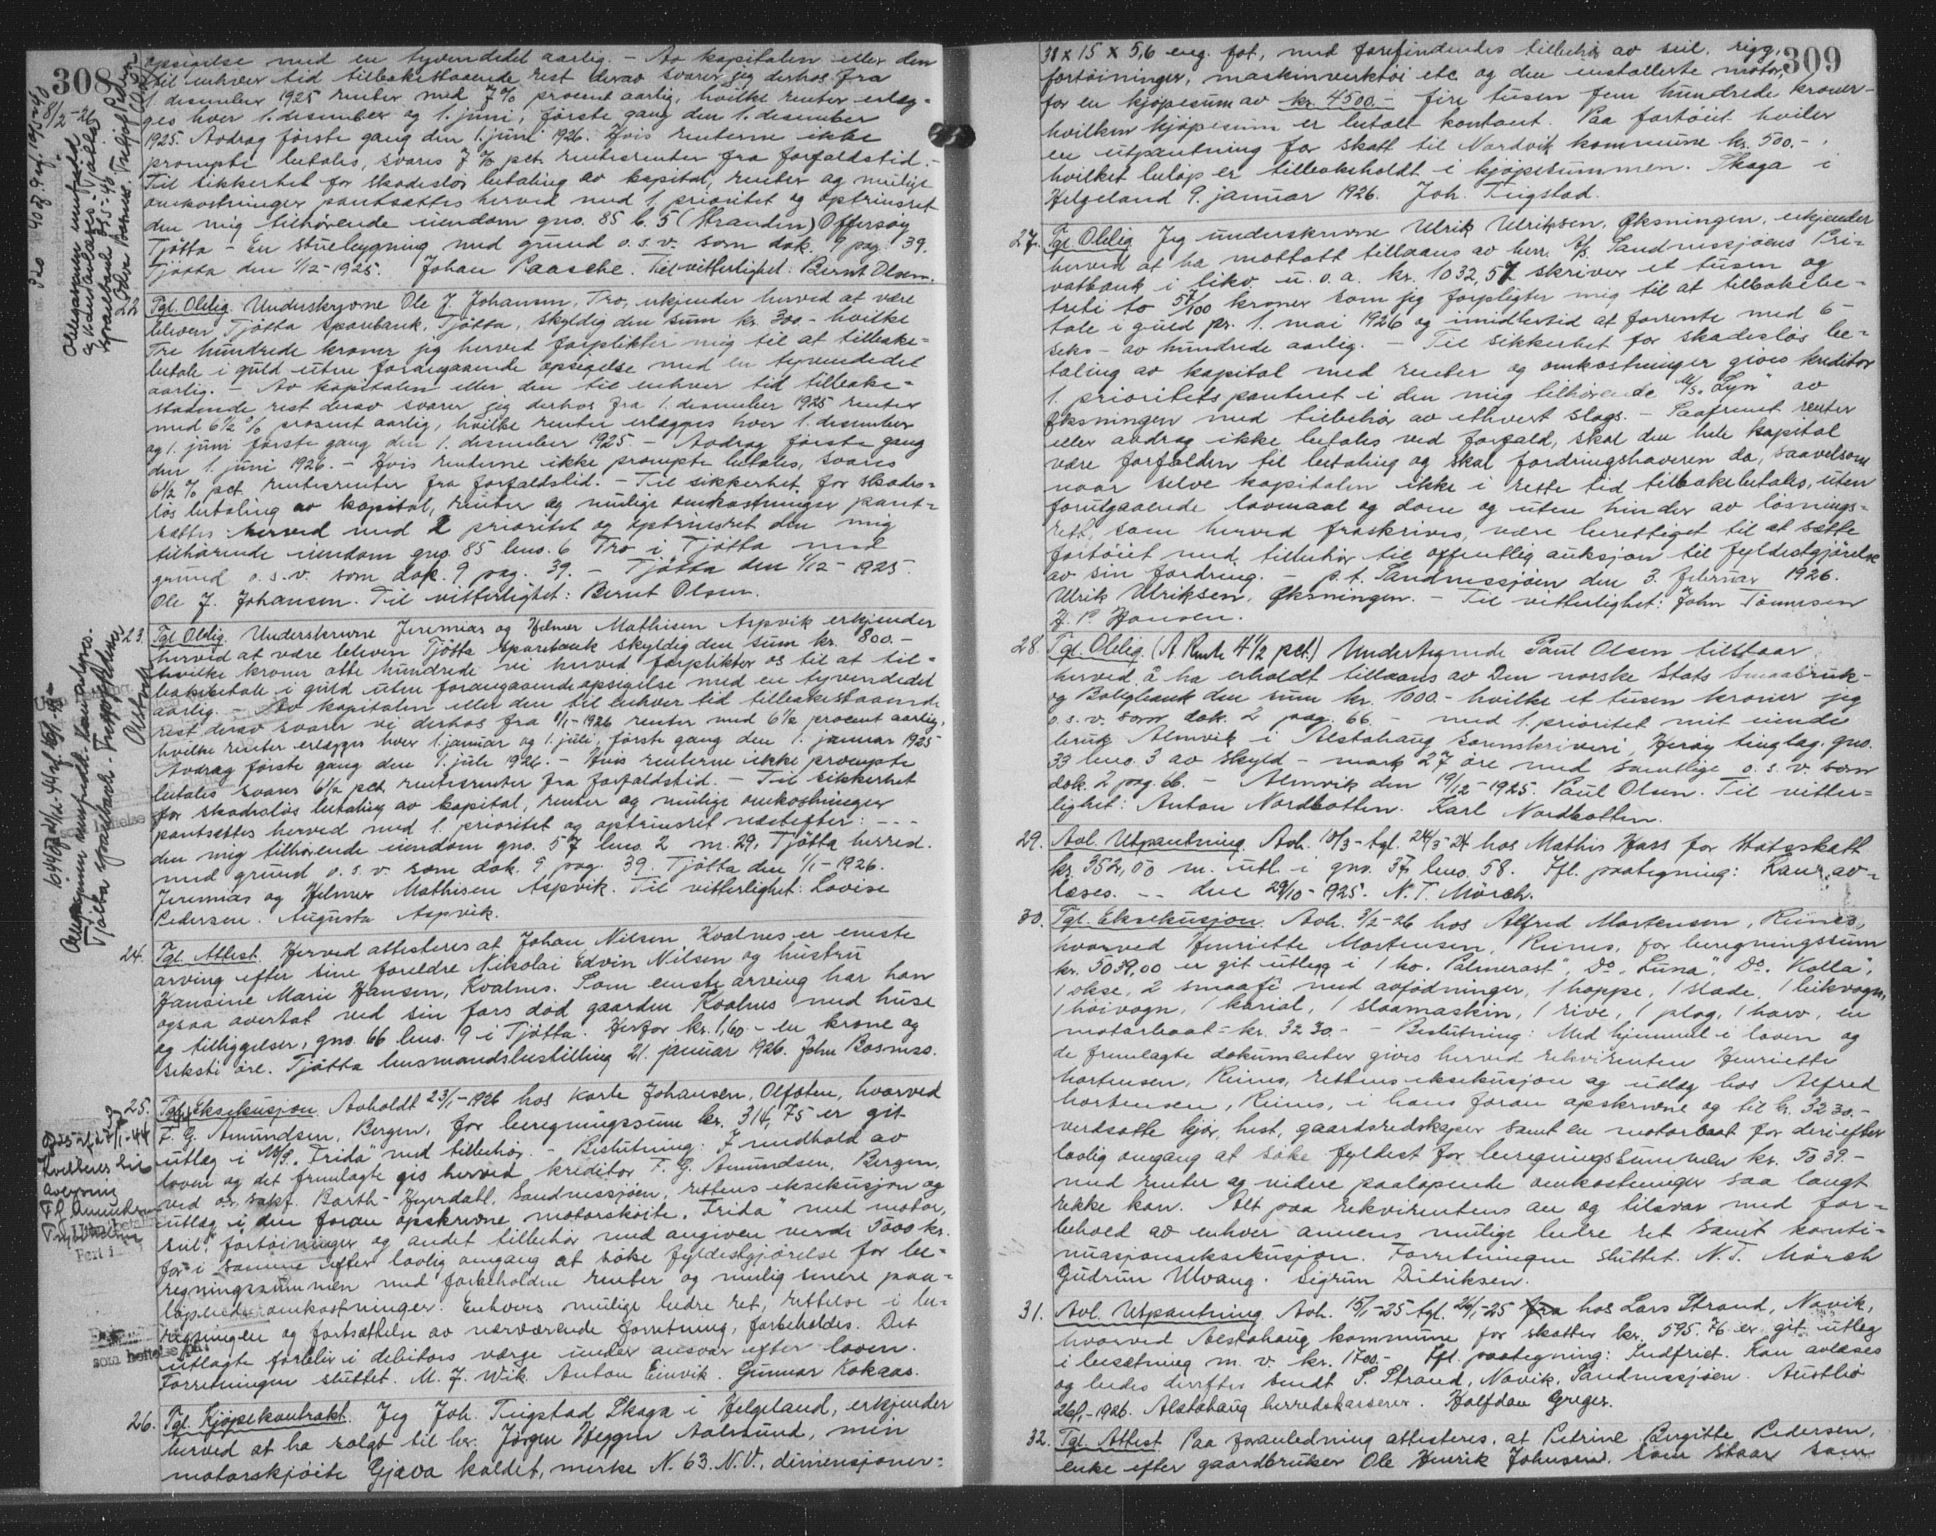 308
opsigelse med en tyvendedel aarlig. – Av kapitalen eller den
til enhver tid tilbakestaaende rest derav svarer jeg derhos fra
1 desember 1925 renter med 7 % procent aarlig, hvilke renter erlæg-
ges hver 1. desember og 1. juni, første gang den 1. desember
1925. Avdrag første gang den 1. juni 1926. Hvis renterne ikke
prompte betales, svares 7 % pct. rentesrenter fra forfaldstid. –
Til sikkerhet for skadesløs betaling av kapital, renter og mulige
omkostninger pantsættes herved med 1 prioritet og optrinsret
den mig tilhørende eiendom gno. 85 b. 5 (Stranden) Offersøy
Tjøtta – En stuebygning med grund o.s.v. som dok. 9 pag. 39.
Tjøtta den 1/12 – 1925. Johan Paasche. Til vitterlighet: Bernt Olsen.
22. Tgl. Oblig. Underskrevne Ole J. Johansen, Tro, erkjender herved at være
bleven Tjøtta sparebank, Tjøtta, skyldig den sum kr. 300 – hvilke
Tre hundrede kroner jeg herved forplikter mig til at tilbake-
betale i guld uten foregaaende opsigelse med en tyvendedel
aarlig. – Av kapitalen eller den til enhver tid tilbake-
staaende rest derav svarer jeg derhos fra 1. desember 1925 renter
med 6 1/2 % prosent aarlig, hvilke renter erlægges hver 1. desember
og 1. juni første gang den 1. desember 1925 – Avdrag første gang
den 1. juni 1926. – Hvis renterne ikke prompte betales, svares
6 1/2 % pct. rentesrenter fra forfaldstid. – Til sikkerhet for skades-
løs betaling av kapital, renter og mulige omkostninger pant-
sættes herved med 2 prioritet og optrinsret den mig
tilhørende eiendom gno. 85 bno. 6 Tro i Tjøtta med
grund o.s.v. som dok. 9 pag. 39. – Tjøtta den 1/12 – 1925.
Ole J. Johansen. Til vitterlighet: Bernt Olsen.
23. Tgl. Oblig. Underskrevne Jeremias og Helmer Mathisen Aspvik erkjender
herved at være bleven Tjøtta sparebank skyldig den sum kr. 800. –
hvilke kroner otte hundrede vi herved forplikter os til at til-
bakebetale i guld uten foregaaende opsigelse med en tyvendedel
aarlig. – Av kapitalen eller den til enhver tid tilbakestaaende
rest derav svarer vi derhos fra 1/1 – 1926 renter med 6 1/2 procent aarlig,
hvilke renter erlægges hver 1. januar og 1. juli, første gang den 1. januar 1925
Avdrag første gang den 1. juli 1926. – Hvis renterne ikke prompte
betales svares 6 1/2 pct. rentesrenter fra forfaldstid. – Til sikkerhet
for skadesløs betaling av kapital, renter og mulige omkostninger
pantsættes herved med 1. prioritet og optrinsret næstefter: – – –
den mig tilhørende eiendom gno. 57 bno. 2 m. 29, Tjøtta herred.
med grund o.s.v. som dok. 9, pag. 39. Tjøtta den 1/1 – 1926.
Jeremias og Helmer Mathisen Aspvik. Til vitterlighet: Lovise
Pedersen. Augusta Aspvik.
24. Tgl. Attest. Herved attesteres at Johan Nilsen, Kvalnes er eneste
arving efter sine foreldre Nikolai Edvin Nilsen og hustru
Jansine Marie Hansen, Kvalnes. Som eneste arving har han
ogsaa overtat ved sin fars død gaarden Kvalnes med huse
og tilliggelser, gno. 66 bno. 9 i Tjøtta. Herfor kr. 1,60 – en krone og
seksti øre. Tjøtta lensmandsbestilling 21. januar 1926. John Bosness.
25. Tgl. Eksekusjon. Avholdt 23/1 – 1926 hos Karle Johansen, Olfoten, hvorved
F. G. Amundsen, Bergen, for beregningssum kr. 314,75 er git
utlæg i M/S. "Frida" med tilbehør. – Beslutning: I medhold av
loven og det fremlagte gis herved kreditor F. G. Amundsen, Bergen,
ved o.r. sakf. Barth-Hyerdahl, Sandnessjøen, rettens eksekusjon og
utlæg i den foran opskrevne motorskøite, "Frida" med motor,
seil, fortøininger og andet tilbehør med angiven verdi 3000 kr.
for i samme efter lovlig omgang at søke fyldestgjørelse for be-
regningssummen med forbeholdne renter og mulig senere paa-
løpende omkostninger. Enhvers mulige bedre ret, rettelse i be-
regningen og fortsættelse av nærværende forretning, forbeholdes. Det
utlagte forblir i debitors værge under ansvar efter loven.
Forretningen sluttet. M. J. Wik. Anton Einvik. Gunnar Kokaas.
26. Tgl. Kjøpekontrakt. Jeg Joh. Tingstad Skaga i Helgeland, erkjender
herved at ha solgt til hr. Jørgen Heggen Aalesund, min
motorskjøite Gjæva kaldet, merke N. 63. N.V., dimensjoner:
309
38 x 15 x 5,6 eng. fot, med forefindendes tilbehør av seil, rigg,
fortøininger, maskinverktøi etc og den installerte motor,
for en kjøpesum av kr. 4500. – fire tusen fem hundrede kroner –
hvilken kjøpesum er betalt kontant. Paa fartøiet hviler
en utpantning for skatt til Nordvik kommune kr. 500. –,
hvilket beløp er tilbakeholdt i kjøpesummen. Skaga i
Helgeland 9. januar 1926. Joh. Tingstad.
27. Tgl. Oblig. Jeg underskrevne Ulrik Ulriksen, Øksningen, erkjender
herved at ha mottatt tillaans av herr A/S Sandnessjøens Pri-
vatbank i likv. u. o. a. kr. 1032,57 skriver et tusen og
treti to 57/100 kroner som jeg forpligter mig til at tilbakebe-
tale i guld pr. 1. mai 1926 og imidlertid at forrente med 6 –
seks – av hundrede aarlig. – Til sikkerhet for skadesløs be-
taling av kapital med renter og omkostninger gives kreditor
1. prioritets panteret i den mig tilhørende M/S. "Lyn" av
Øksningen med tilbehør av ethvert slags. – Saafremt renter
eller avdrag ikke betales ved forfald, skal den hele kapital
være forfalden til betaling og skal fordringshaveren da, saavelsom
naar selve kapitalen ikke i rette tid tilbakebetales, uten
forutgaaende lovmaal og dom og uten hinder av løsnings-
rett, som herved fraskrives, være berettiget til at sætte
fartøiet med tilbehør til offentlig auksjon til fyldestgjørelse
av sin fordring. – p. t. Sandnessjøen den 3. februar 1926.
Ulrik Ulriksen, Øksningen. – Til vitterlighet: John Tønnesen
H. P. Hansen.
28. Tgl. Oblig. (A Rente 4 1/2 pct.) Undertegnede Paul Olsen tilstaar
herved å ha erholdt tillaans av Den norske Stats Smaabruk-
og Boligbank den sum kr. 1000. – hvilke et tusen kroner jeg
o.s.v. som dok. 2 pag. 66 – med 1. prioritet mit eiende
bruk Almvik i Alstahaug sorenskriveri, Herøy tinglag. gno.
33 bno. 3 av skyld – mark 27 øre med samtlige o.s.v. som
dok. 2 pag. 66. – Almvik den 19/12 – 1925. Paul Olsen. Til vitter-
lighet: Anton Nordbotten. Karl Nordbotten.
29. Avl. Utpantning. Avh. 18/3 – tgl. 24/3 – 24 hos Mathis Hass for Statsskatt
kr. 352,00 m. utl. i gno. 37 bno. 58. Ifl. paategning: Kan av-
læses. – den 29/10 – 1925. N. T. Mørch.
30. Tgl. Eksekusjon. Avh. 3/2 – 26 hos Alfred Mortensen, Reines,
hvorved Henriette Mortensen, Reines, for beregningssum
kr. 5039,00 er git utlegg i 1 ko. "Palmerost", Do. "Luna", Do. "Kolla",
1 okse, 2 smaafe med avfødninger, 1 hoppe, 1 slæde, 1 leikvogn,
1 høivogn, 1 kariol, 1 slaamaskin, 1 rive, 1 plog, 1 harv, en
motorbaat = kr. 3230. – – Beslutning: Med hjemmel i loven og
de fremlagte dokumenter gives herved rekvirenten Henriette
Mortensen, Reines, rettens eksekusjon og utlæg hos Alfred
Mortensen, Reines, i hans foran opskrevne og til kr. 3230. –
verdsatte kjør, hest, gaardsredskaper samt en motorbaat for deri efter
lovlig omgang at søke fyldest for beregningssummen kr. 5039. –
med renter og videre paaløpende omkostninger saa langt
rekke kan. Alt paa rekvirentens an og tilsvar med for-
behold av enhver annens mulige bedre ret samt konti-
nuasjonseksekusjon. Forretningen sluttet. N. T. Mørch
Gudrun Ulvang. Sigrun Didriksen.
31. Avl. Utpantning Avh. 15/1 – 25 tgl. 26/1 – 25 hos Lars Strand, Novik,
hvorved Alstahaug kommune for skatter kr. 595.76 er git utleg
i besætning m. v. kr. 1700. – Ifl. paategning: Indfriet. Kan avlæses
og bedes derefter sendt P. Strand, Novik, Sandnessjøen. Austbø
26/1 – 1926. Alstahaug herredskasserer. Halfdan Greger.
32. Tgl. Attest Paa foranledning attesteres, at Petrine Birgitte Pedersen,
enke efter gaardbruker Ole Henrik Johnsen, som staar som